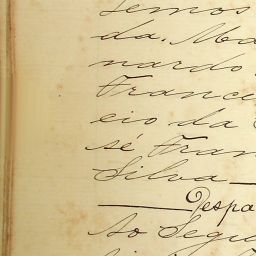 temos
da. Ma
nardo
Franci
cio da
sé Fran
Silva
Despa
Ao Segu